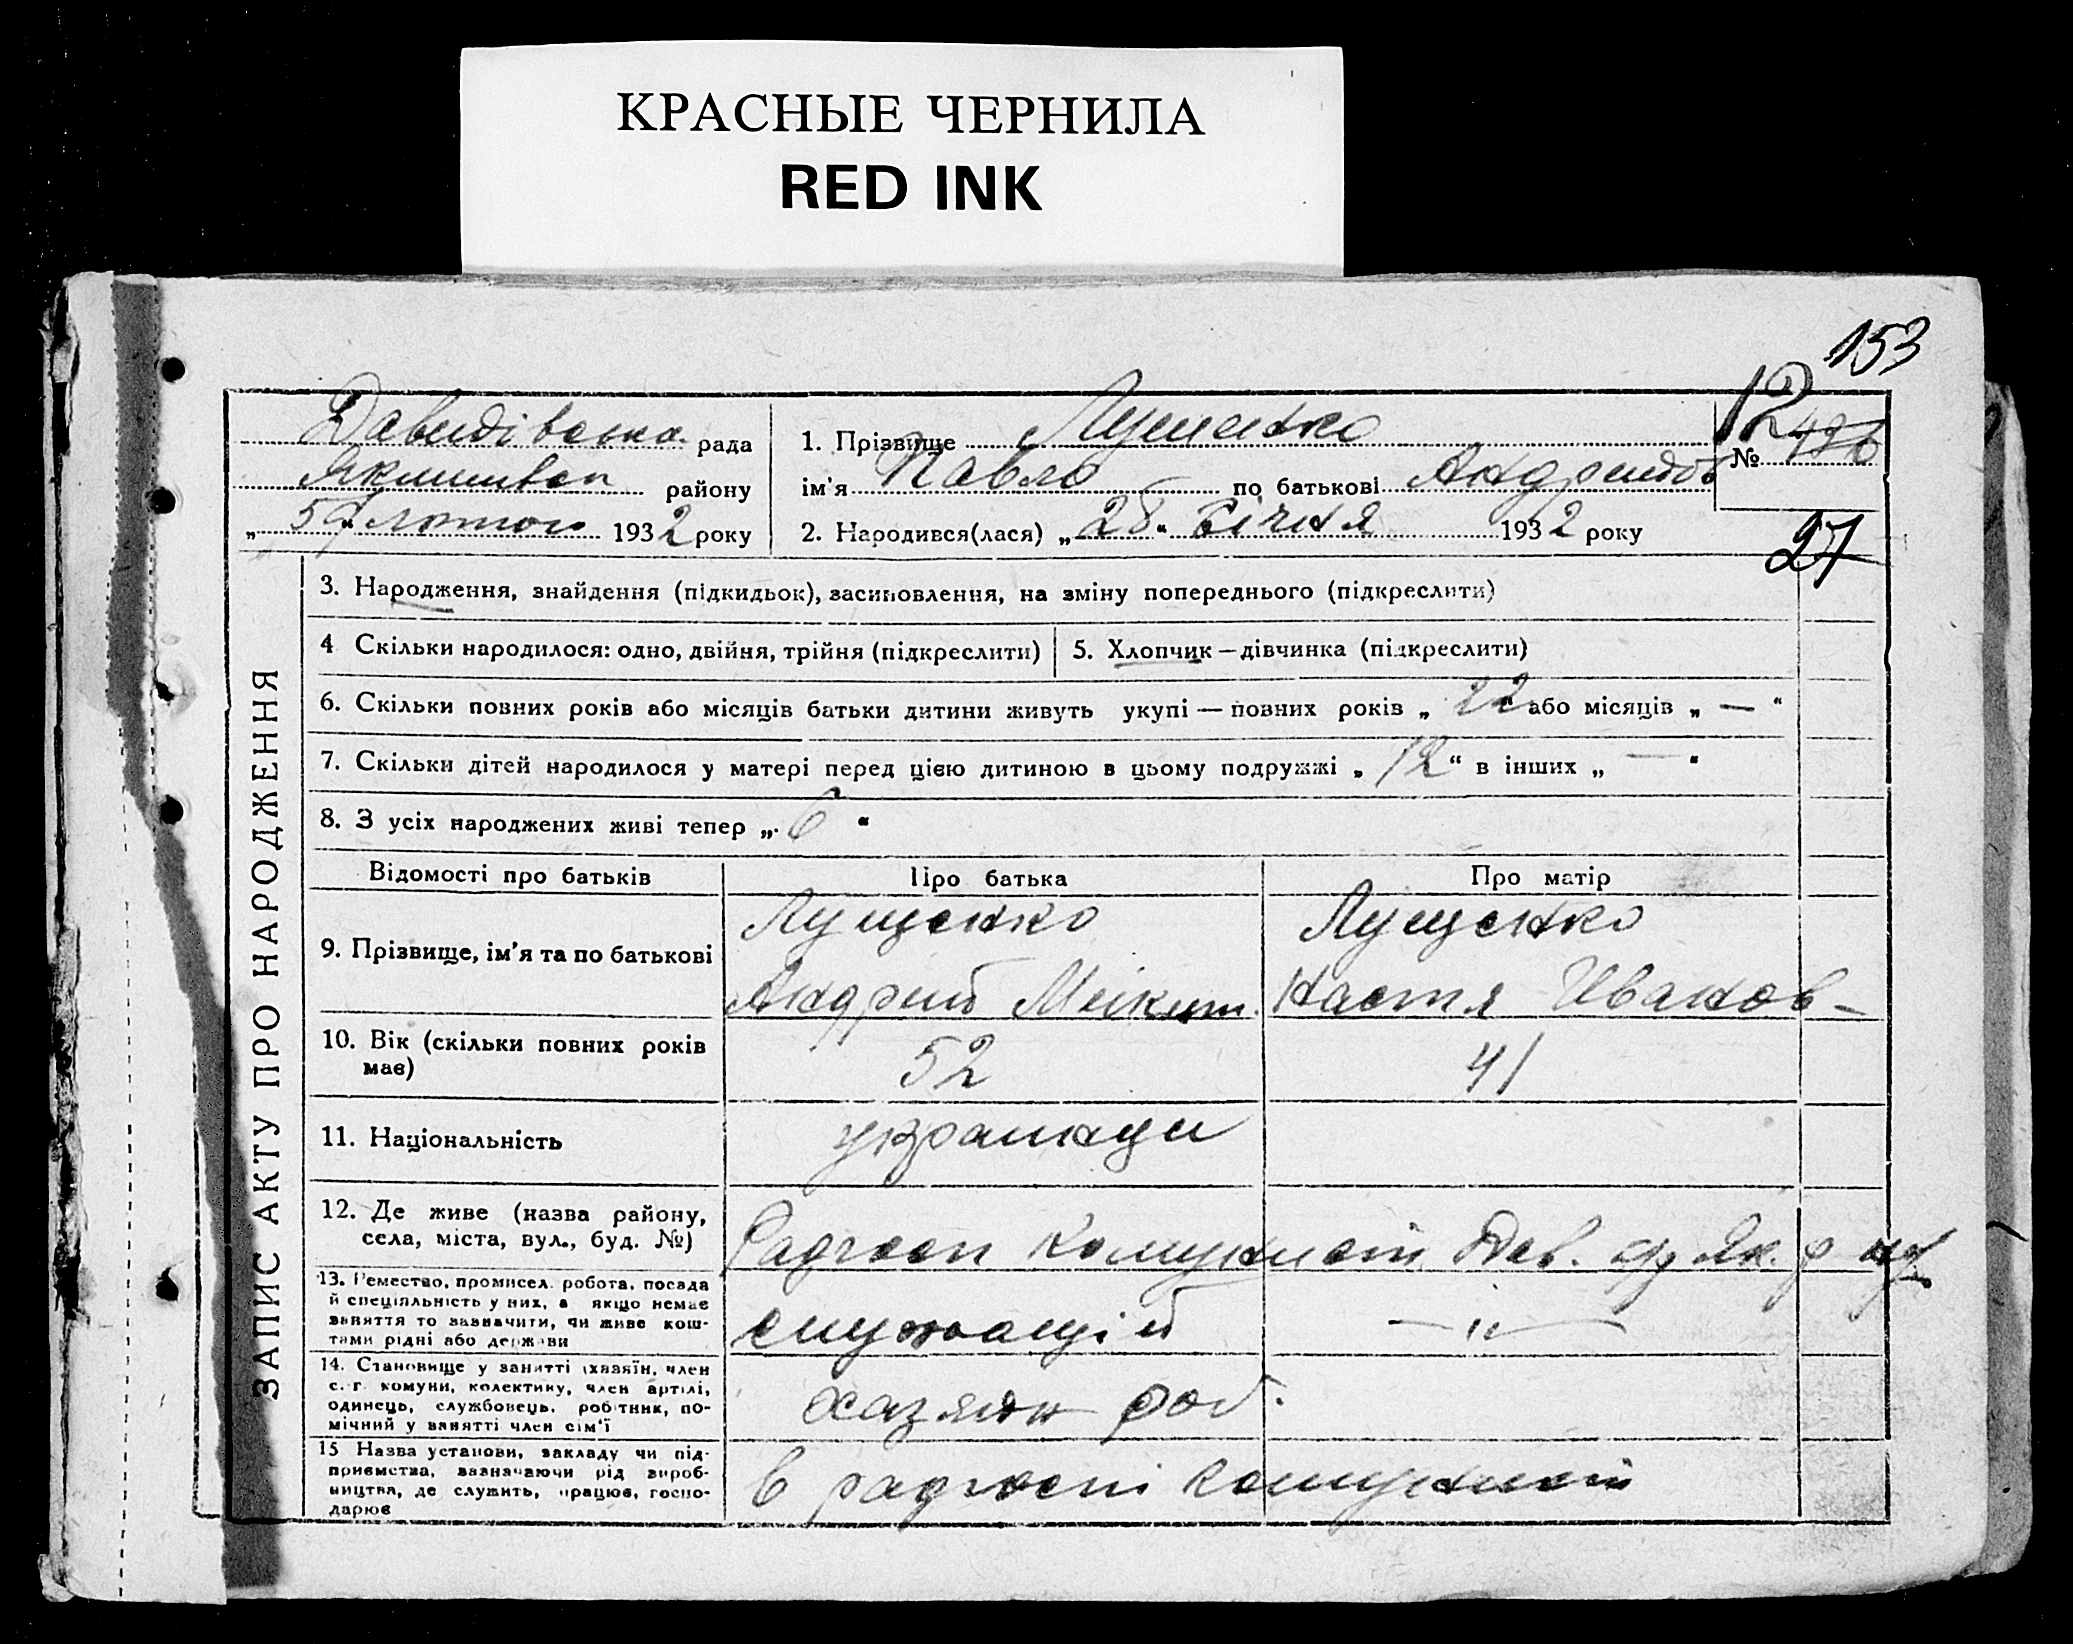 КРАСНЫЕ ЧЕРНИЛА
RED INK
153
Давидівська рада
району
„ 5 “ лютого 1932 року
1. Прізвище Лущенко
ім'я Павло по батькові Андрийов
2. Народився(лася) „ 28 “ Січня 1932 року
12
№
27
ЗАПИС АКТУ ПРО НАРОДЖЕННЯ
3. Народження, знайдення (підкидьок), засиновлення, на зміну попереднього (підкреслити)
4 Скільки народилося: одно, двійня, трійня (підкреслити)
5. Хлопчик — дівчинка (підкреслити)
6. Скільки повних років або місяців батьки дитини живуть укупі — повних років „ 22 “ або місяців „ — “
7. Скільки дітей народилося у матері перед цією дитиною в цьому подружжі „ 12 “ в інших „ — “
8. З усіх народжених живі тепер „ 6 “
Відомості про батьків
Про батька
Про матір
9. Прізвище, ім'я та по батькові
Лущенко
Андрий Микит.
Лущенко
Настя Иванов-
10. Вік (скільки повних років має)
52
41
11. Національність
украинци
12. Де живе (назва району,
села, міста, вул., буд. №)
Радгосп Комунист Дав. Як. р
13. Ремество, промисел. робота, посада
й спеціяльність у них, а якщо немає
заняття то зазначити, чи живе кош-
тами рідні або держави
служащій
— " —
14. Становище у занятті (хазяїн, член
с.-г. комуни, колективу, член артілі,
одинець, службовець, робітник, по-
мічний у занятті член сім'ї
роб.
15 Назва установи, закладу чи під-
приємства, зазначаючи рід вироб-
ництва, де служить, працює, госпо-
дарює
в радгоспі Комунист